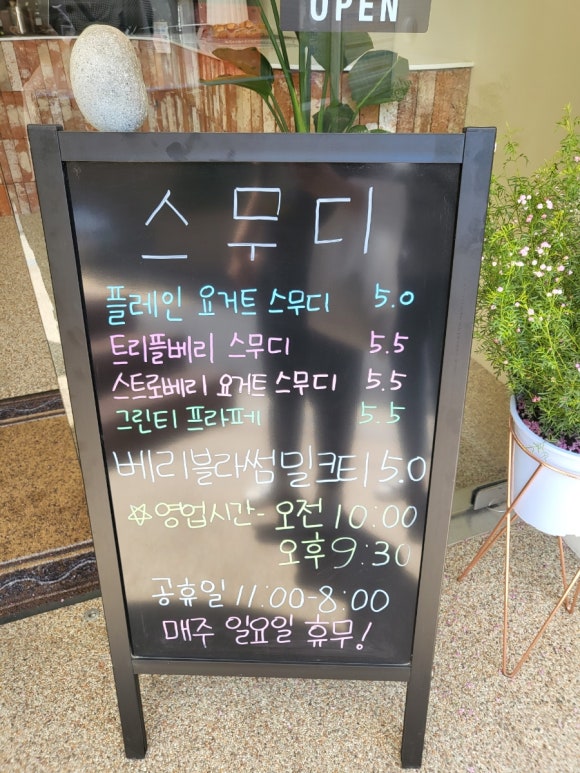 OPEN
스무디
플레인 요거트 스무디 5.0
트리플베리 스무디 5.5
스트로베리 요거트 스무디 5.5
그린티 프라페 5.5
베리블라썸밀크티 5.0
☆영업시간- 오전 10:00
오후 9:30
공휴일 11:00-8:00
매주 일요일 휴무!